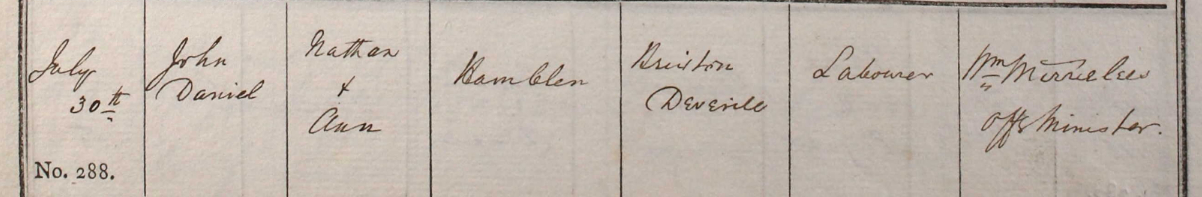 July
30th
No. 288.
John
Daniel
Nathan
&
Ann
Bamblen
Brixton
Deverill
Labourer
Wm Mirrielees
Offg Minister.